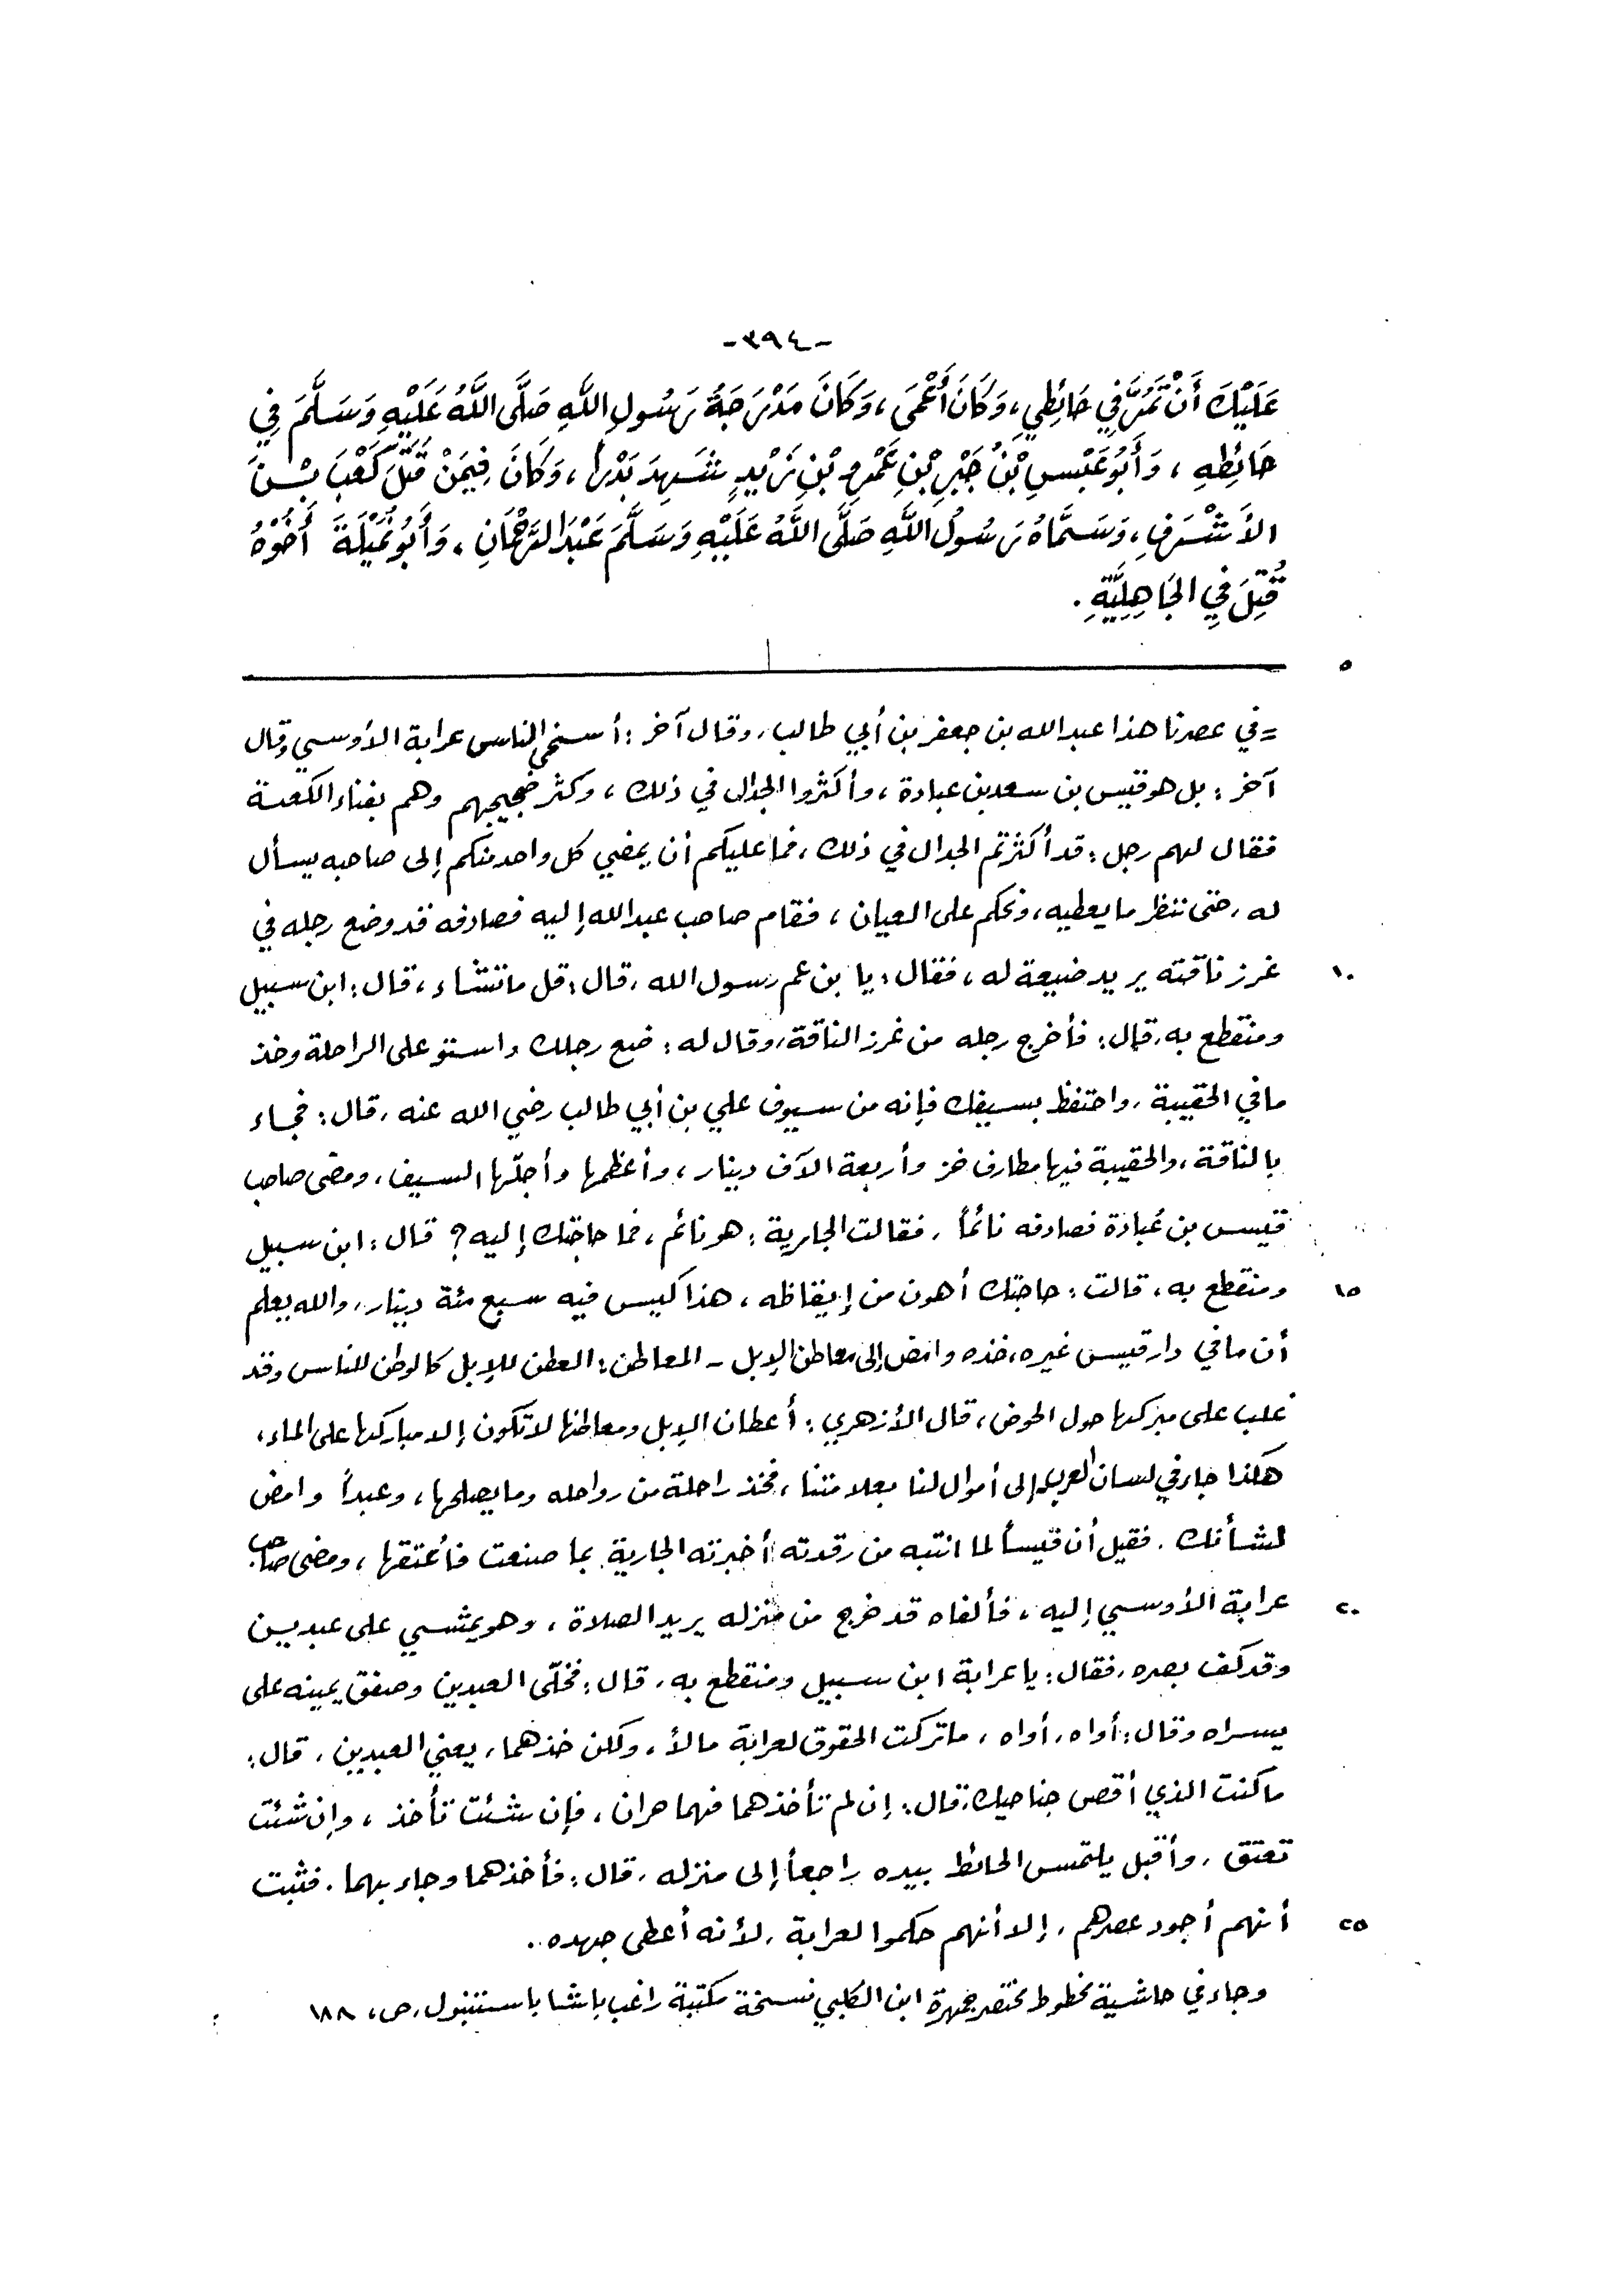 -٣٩٤-
عَلَيْكَ أَنْ تَمُرَّ فِي حَائِطِي، وَكَانَ أَعْمَى، وَكَانَ مَدْرَجَةُ رَسُولِ اللَّهِ صَلَّى اللَّهُ عَلَيْهِ وَسَلَّمَ فِي
حَائِطِهِ، وَأَبُو عَبْسِ بْنُ جَبْرِ بْنِ عَمْرِو بْنِ زَيْدٍ شَهِدَ بَدْراً، وَكَانَ فِيمَنْ قَتَلَ كَعْبَ بْنَ
الأَشْرَفِ، وَسَمَّاهُ رَسُولُ اللَّهِ صَلَّى اللَّهُ عَلَيْهِ وَسَلَّمَ عَبْدَ الرَّحْمَانِ، وَأَبُو نُمَيْلَةَ أَخُوْهُ
قُتِلَ فِي الجَاهِلِيَّةِ.
٥
= في عصرنا هذا عبد الله بن جعفر بن أبي طالب، وقال آخر: أسخى الناس عرابة الأوسي وقال
آخر: بل هو قيس بن سعد بن عبادة، وأكثروا الجدال في ذلك، وكثر ضجيجهم وهم بفناء الكعبة
فقال لهم رجل: قد أكثرتم الجدال في ذلك، فما عليكم أن يمضي كل واحد منكم إلى صاحبه يسأل
له، حتى ننظر ما يعطيه، ونحكم على العيان، فقام صاحب عبد الله إليه فصادفه قد وضع رجله في
١٠ غرز ناقته يريد ضيعة له، فقال: يا بن عم رسول الله، قال: قل ما تشاء، قال: ابن سبيل
ومنقطع به، قال: فأخرج رجله من غرز الناقة، وقال له: ضع رجلك واستو على الراحلة وخذ
ما في الحقيبة، واحتفظ بسيفك فإنه من سيوف علي بن أبي طالب رضي الله عنه، قال: فجاء
بالناقة، والحقيبة فيها مطارف خز وأربعة آلاف دينار، وأعظمها وأجلّها السيف، ومضى صاحب
قيس بن عُبادة فصادفه نائماً، فقالت الجارية: هو نائم، فما حاجتك إليه؟ قال: ابن سبيل
١٥ ومنقطع به، قالت: حاجتك أهون من إيقاظه، هذا كيس فيه سبع مئة دينار، والله يعلم
أن ما في دار قيس غيره، خذه وامض إلى معاطن الإبل - المعاطن: العطن للإبل كالوطن للناس وقد
غلب على مبركها حول الحوض، قال الأزهري: أعطان الإبل ومعاطنها لا تكون إلا مباركها على الماء،
هكذا جاء في لسان العرب إلى أموال لنا بعلامتنا، فخذ راحلة من رواحله وما يصلحها، وعبداً وامض
لشأنك. فقيل أن قيساً لما انتبه من رقدته أخبرته الجارية بما صنعت فأعتقها، ومضى صاحب
٢٠ عرابة الأوسي إليه، فألفاه قد خرج من منزله يريد الصلاة، وهو يمشي على عبدين
وقد كف بصره، فقال: يا عرابة ابن سبيل ومنقطع به، قال: فخلّى العبدين وصفق يمينه على
يسراه وقال: أواه، أواه، ما تركت الحقوق لعرابة مالاً، ولكن خذهما، يعني العبدين، قال:
ما كنت الذي أقص جناحيك، قال: إن لم تأخذهما فهما حران، فإن شئت تأخذ، وإن شئت
تعتق، وأقبل يلتمس الحائط بيده راجعاً إلى منزله، قال: فأخذهما وجاء بهما. فثبت
٢٥ أنهم أجود عصرهم، إلا أنهم حكموا لعرابة، لأنه أعطى جهده.
وجاء في حاشية مخطوط مختصر جمهرة ابن الكلبي نسخة مكتبة راغب باشا باستنبول، ص، ١٨٨